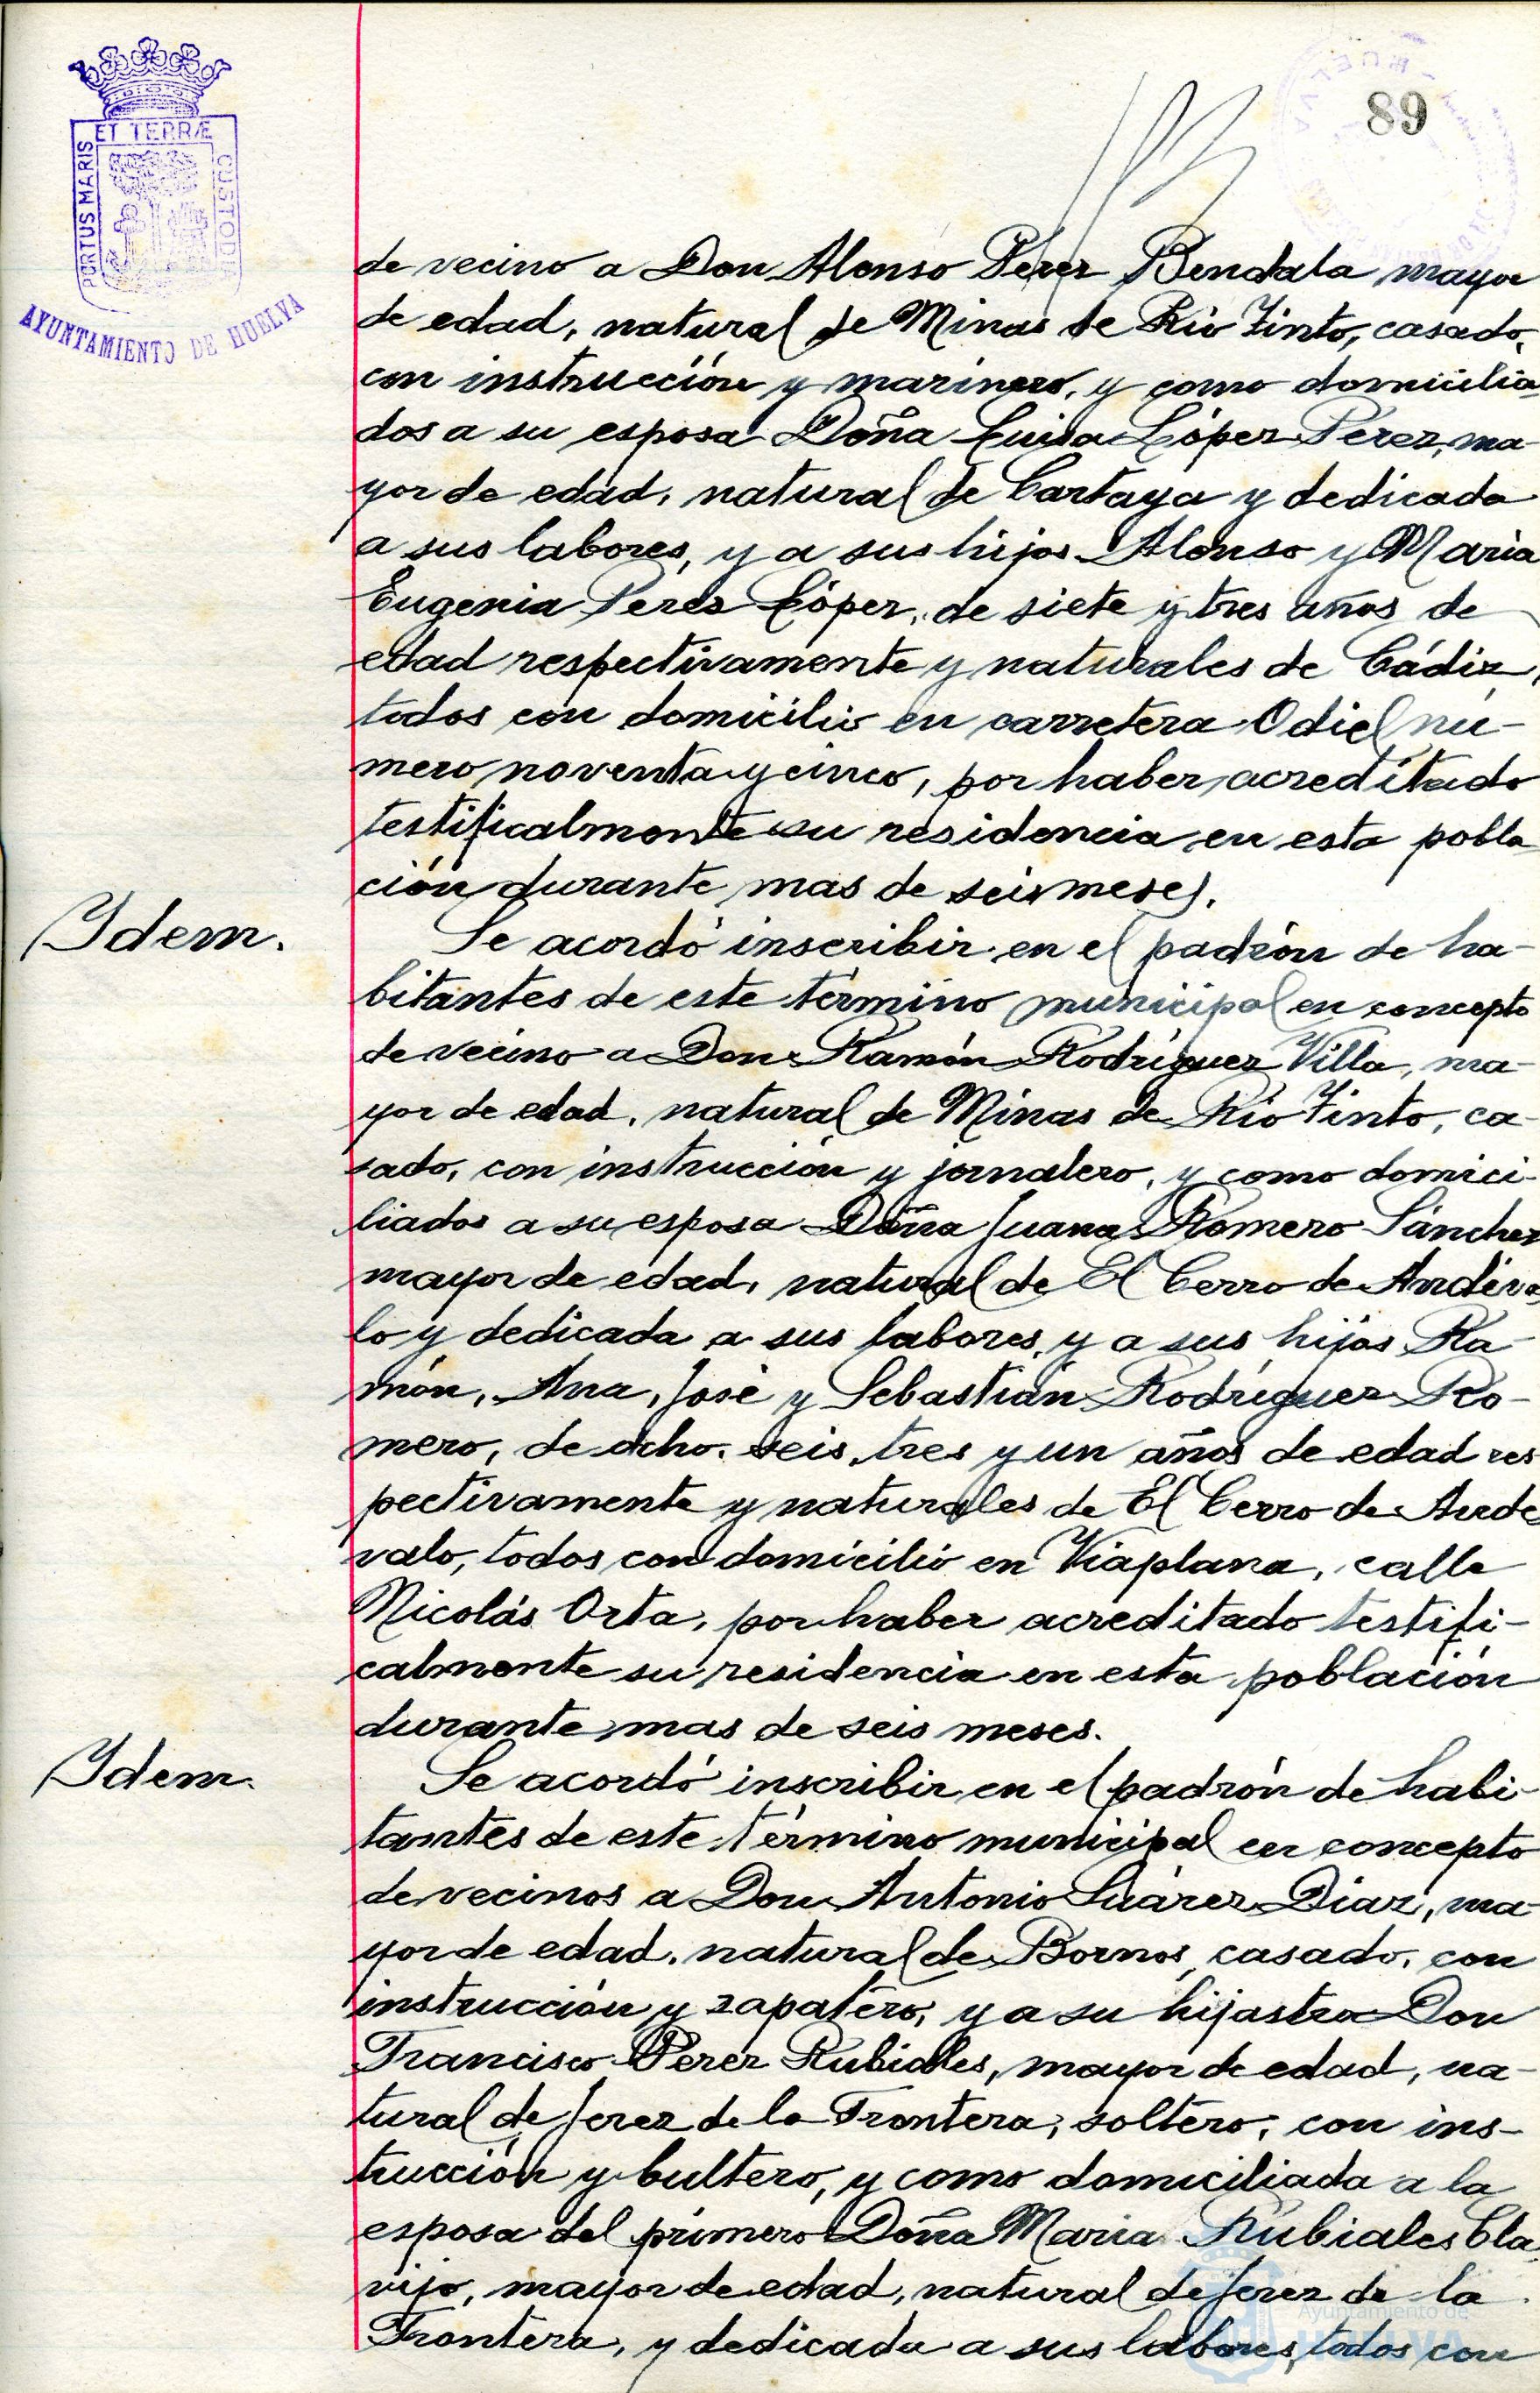 89
ET TERRÆ
PORTUS MARIS
CUSTODIA
AYUNTAMIENTO DE HUELVA
de vecino a Don Alonso Pérez Bendala mayor
de edad, natural de Minas de Rio Tinto, casado,
con instrucción y marinero, y como domicilia-
dos a su esposa Doña Luisa López Pérez, ma-
yor de edad, natural de Cartaya y dedicada
a sus labores, y a sus hijos Alonso y Maria
Eugenia Perez López, de siete y tres años de
edad respectivamente y naturales de Cádiz,
todos con domicilio en carretera Odiel nú-
mero noventa y cinco, por haber acreditado
testificalmente su residencia en esta pobla-
ción durante mas de seis meses.
Ydem.
Se acordó inscribir en el padrón de ha-
bitantes de este término municipal en concepto
de vecino a Don Ramón Rodríguez Villa, ma-
yor de edad, natural de Minas de Rio Tinto, ca-
sado, con instrucción y jornalero, y como domici-
liados a su esposa Doña Juana Romero Sánchez
mayor de edad, natural de El Cerro de Andéva
lo y dedicada a sus labores, y a sus hijos Ra-
món, Ana, José y Sebastián Rodríguez Ro-
mero, de ocho, seis, tres y un años de edad res
pectivamente y naturales de El Cerro de Andé
valo, todos con domicilio en Viaplana, calle
Nicolás Orta, por haber acreditado testifi-
calmente su residencia en esta población
durante mas de seis meses.
Ydem.
Se acordó inscribir en el padrón de habi-
tantes de este término municipal en concepto
de vecinos a Don Antonio Suárez Diaz, ma-
yor de edad, natural de Bornos, casado, con
instrucción y zapatero, y a su hijastro Don
Francisco Pérez Rubiales, mayor de edad, na-
tural de Jerez de la Frontera, soltero, con ins-
trucción y bultero, y como domiciliada a la
esposa del primero Doña Maria Rubiales Cla
vijo, mayor de edad, natural de Jerez de la
Frontera, y dedicada a sus labores, todos con
Ayuntamiento de
HUELVA